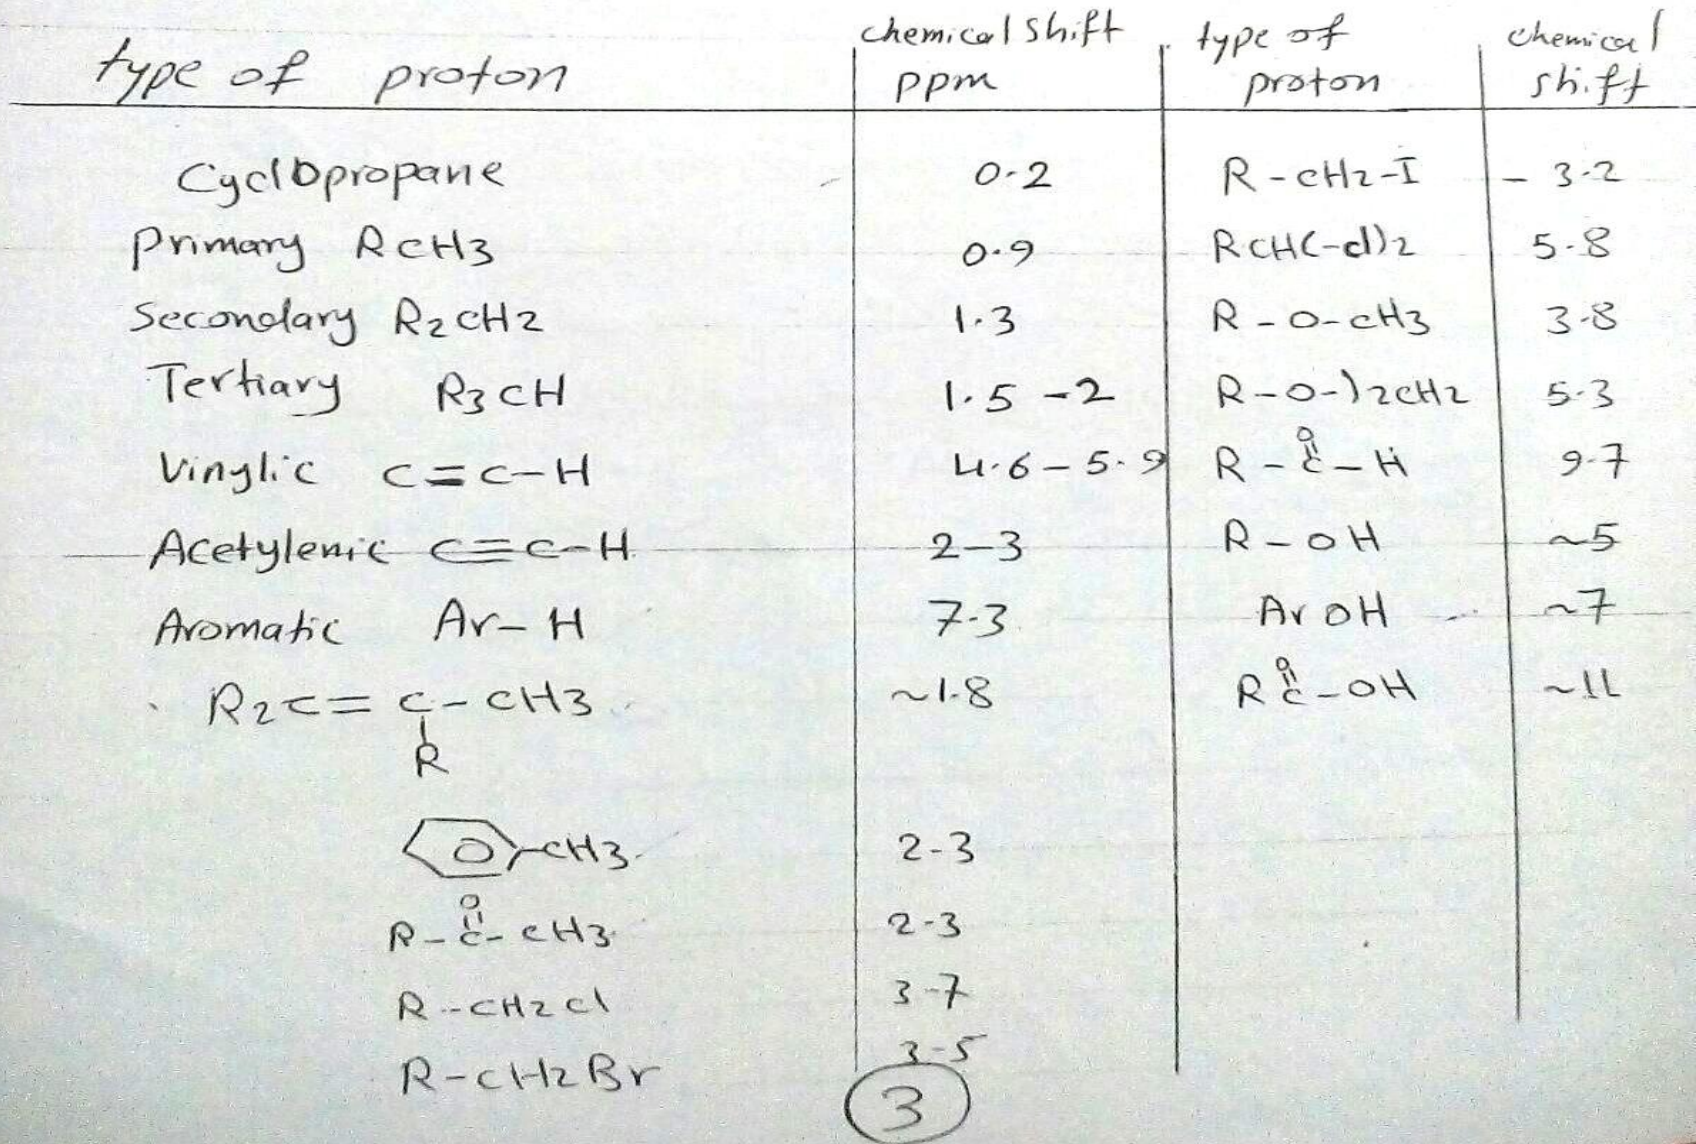 type of proton chemical shift ppm type of proton chemical shift
Cyclopropane 0.2 R-CH2-I - 3.2
Primary RCH3 0.9 RCH(-cl)2 5.8
Secondary R2CH2 1.3 R-O-CH3 3.8
Tertiary R3CH 1.5-2 R-O-)2CH2 5.3
Vinylic C=C-H 4.6-5.9 R-C-H 9.7
O
Acetylenic C≡C-H 2-3 R-OH ~5
Aromatic Ar-H 7.3 ArOH ~7
O
R2C=C-CH3 ~1.8 RC-OH ~11
R
CH3 2-3
O
R-C-CH3 2-3
R-CH2Cl 3-7
R-CH2Br 3-5
3